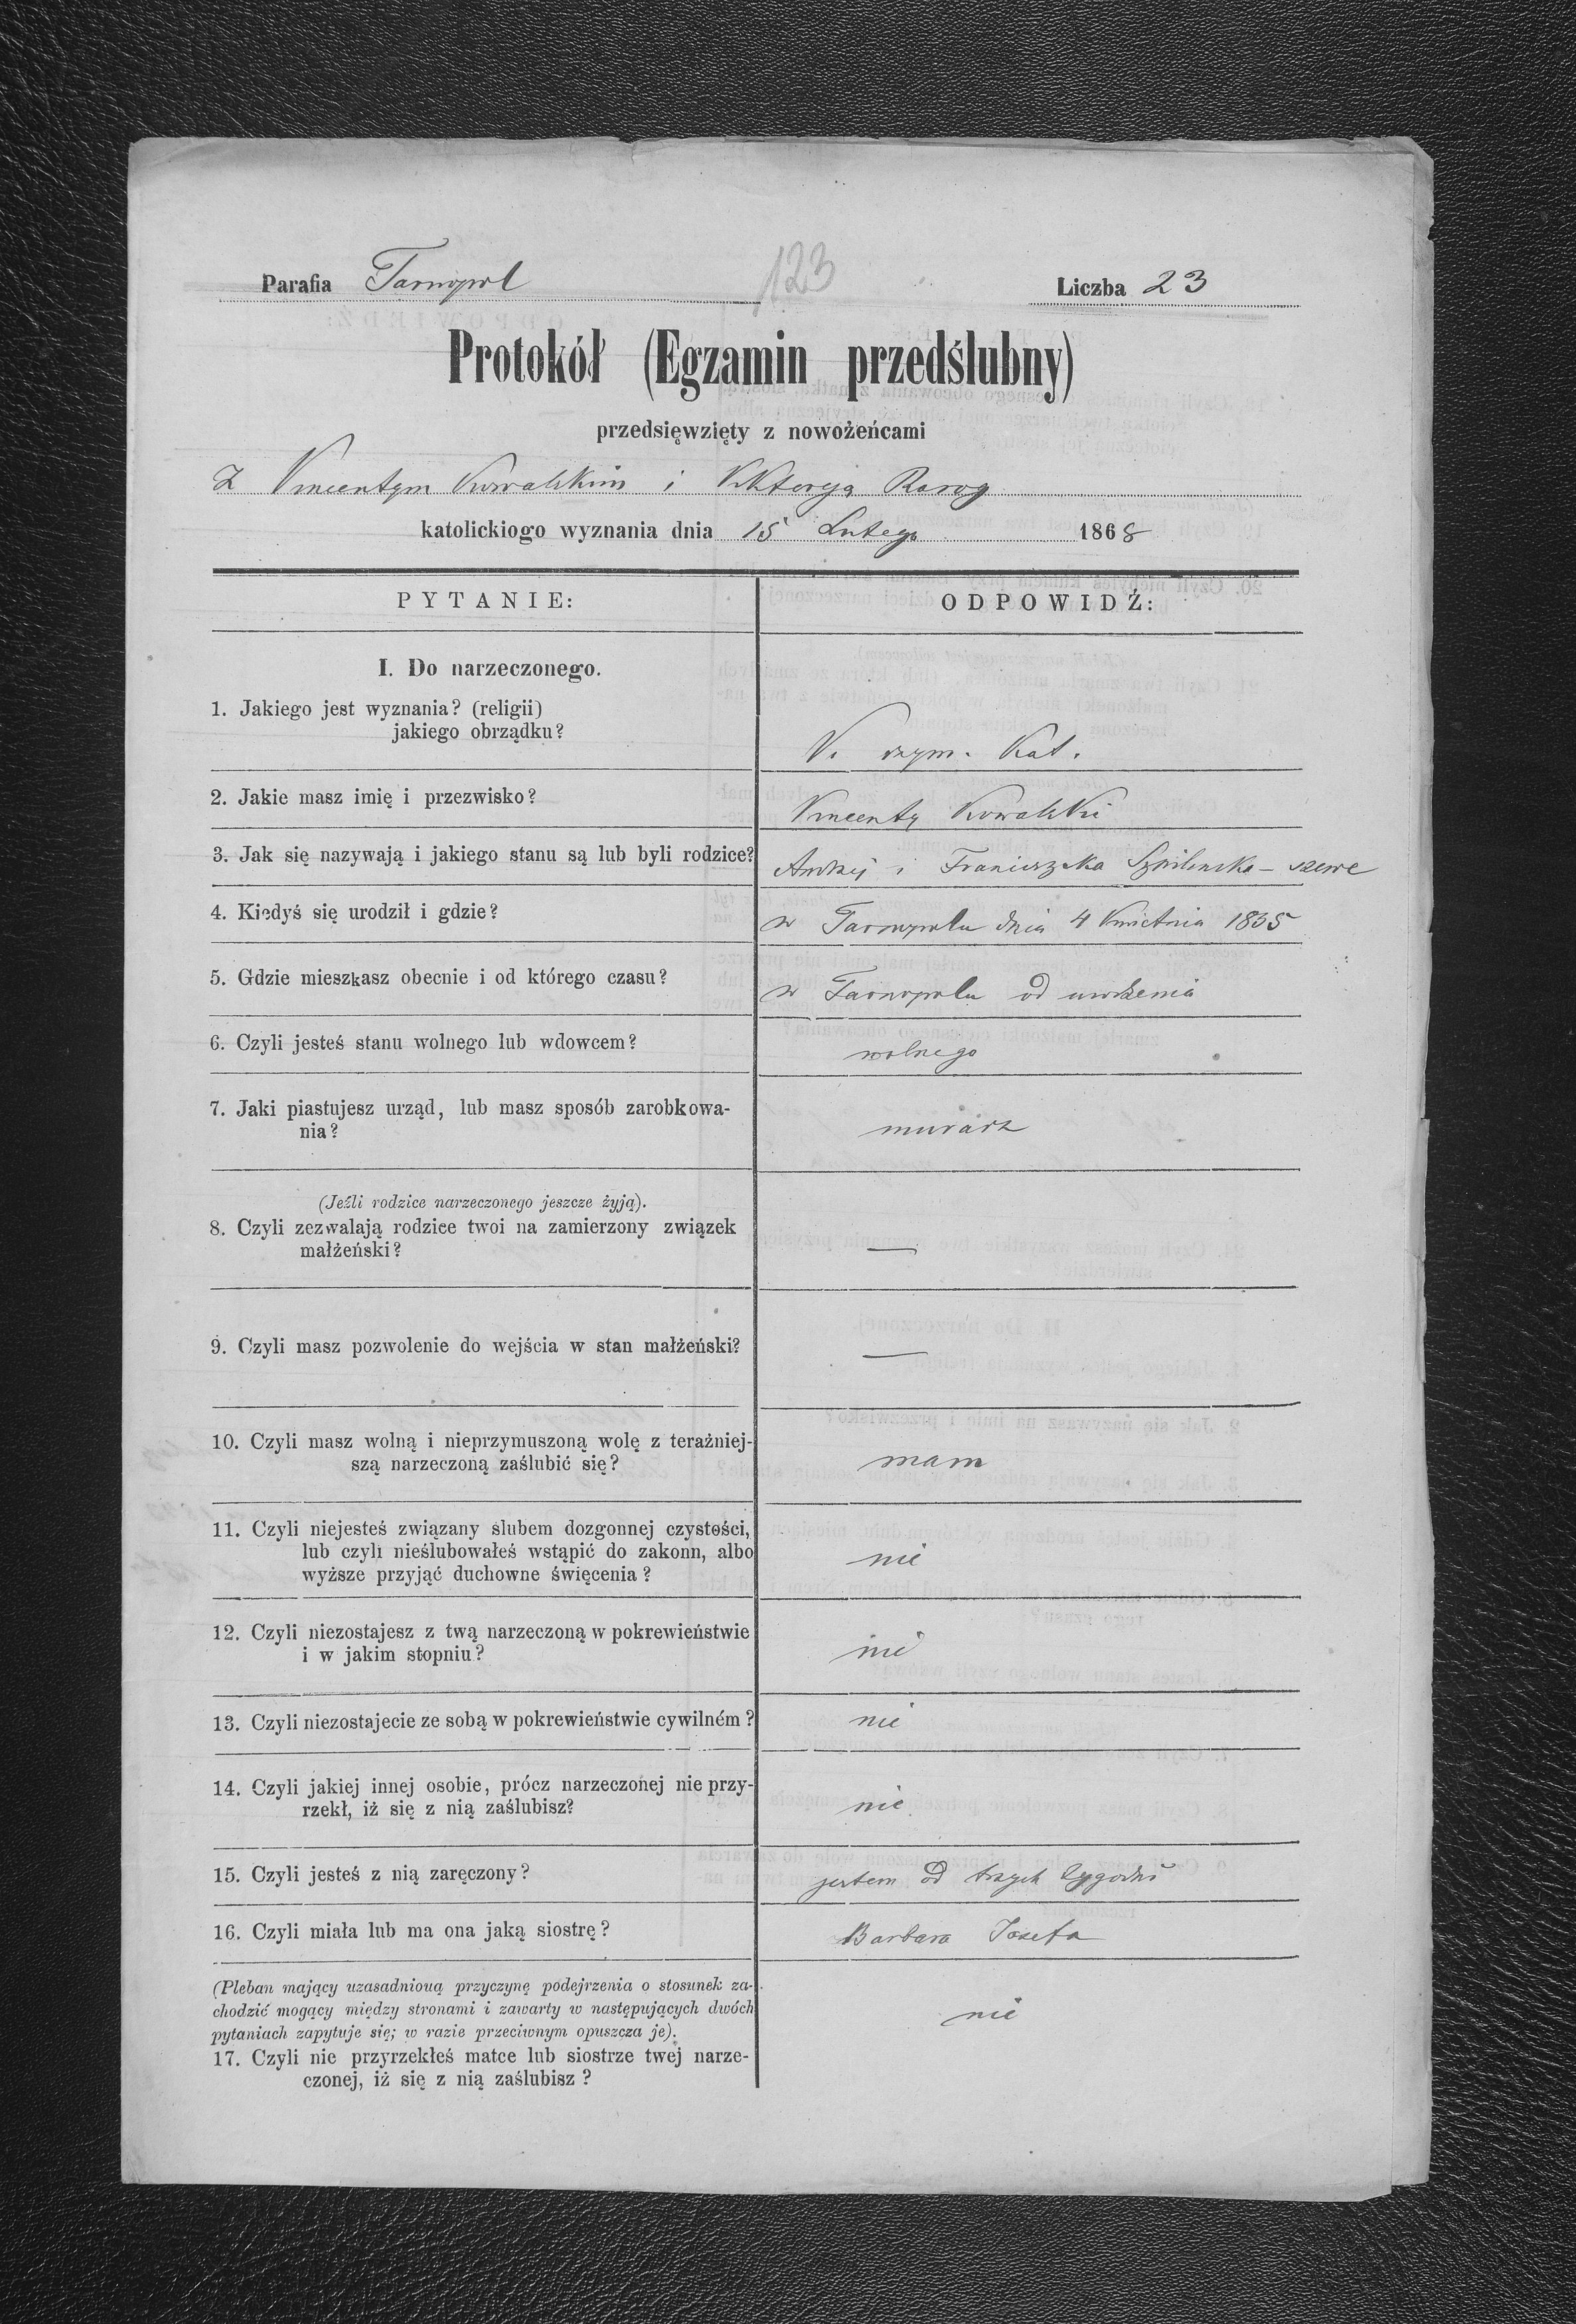 Parafia Tarnopol
123
Liczba 23
Protokół (Egzamin przedślubny)
przedsięwzięty z nowożeńcami
z Vincentym Kowalskim i Viktoryą Rarog
katolickiogo wyznania dnia 15 Lutego 1868
PYTANIE:
ODPOWIDŹ:
I. Do narzeczonego.
1. Jakiego jest wyznania? (religii)
jakiego obrządku?
V. rzym. Kat.
2. Jakie masz imię i przezwisko?
Vincenty Kowalski
3. Jak się nazywają i jakiego stanu są lub byli rodzice?
Andrzej i Franciszka - szewc
4. Kiedyś się urodził i gdzie?
w Tarnopolu dnia 4 Kwietnia 1835
5. Gdzie mieszkasz obecnie i od którego czasu?
w Tarnopolu od urodzenia
6. Czyli jesteś stanu wolnego lub wdowcem?
wolnego
7. Jaki piastujesz urząd, lub masz sposób zarobkowa-
nia?
murarz
(Jeźli rodzice narzeczonego jeszcze żyją).
8. Czyli zezwalają rodzice twoi na zamierzony związek
małżeński?
—
9. Czyli masz pozwolenie do wejścia w stan małżeński?
—
10. Czyli masz wolną i nieprzymuszoną wolę z teraźniej-
szą narzeczoną zaślubić się?
mam
11. Czyli niejesteś związany ślubem dozgonnej czystości,
lub czyli nieślubowałeś wstąpić do zakonn, albo
wyższe przyjąć duchowne święcenia?
nie
12. Czyli niezostajesz z twą narzeczoną w pokrewieństwie
i w jakim stopniu?
nie
13. Czyli niezostajecie ze sobą w pokrewieństwie cywilném?
nie
14. Czyli jakiej innej osobie, prócz narzeczonej nie przy-
rzekł, iż się z nią zaślubisz?
nie
15. Czyli jesteś z nią zaręczony?
jestem od trzech tygodni
16. Czyli miała lub ma ona jaką siostrę?
Barbara Josefa
(Pleban mający uzasadnioną przyczynę podejrzenia o stosunek za-
chodzić mogący między stronami i zawarty w następujących dwóch
pytaniach zapytuje się; w razie przeciwnym opuszcza je).
nie
17. Czyli nie przyrzekłeś matce lub siostrze twej narze-
czonej, iż się z nią zaślubisz?